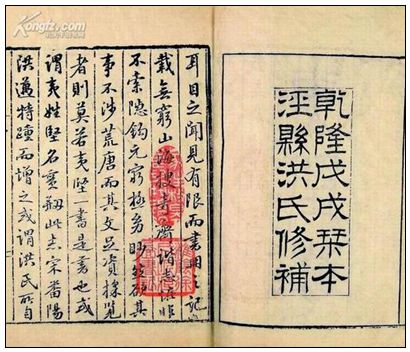 Kongfz.com
乾隆戊戌栞本
涇縣洪氏修補
耳目之聞見有限而書冊之記
載無窮山海搜奇齊諧志怪非
不索隱鉤元窮極眇欲其
事不涉荒唐而其文足資採覽
者則莫若夷堅一書是書也或
謂夷姓堅名實剏此宗鄱陽
洪邁特踵而增之或謂洪氏所自